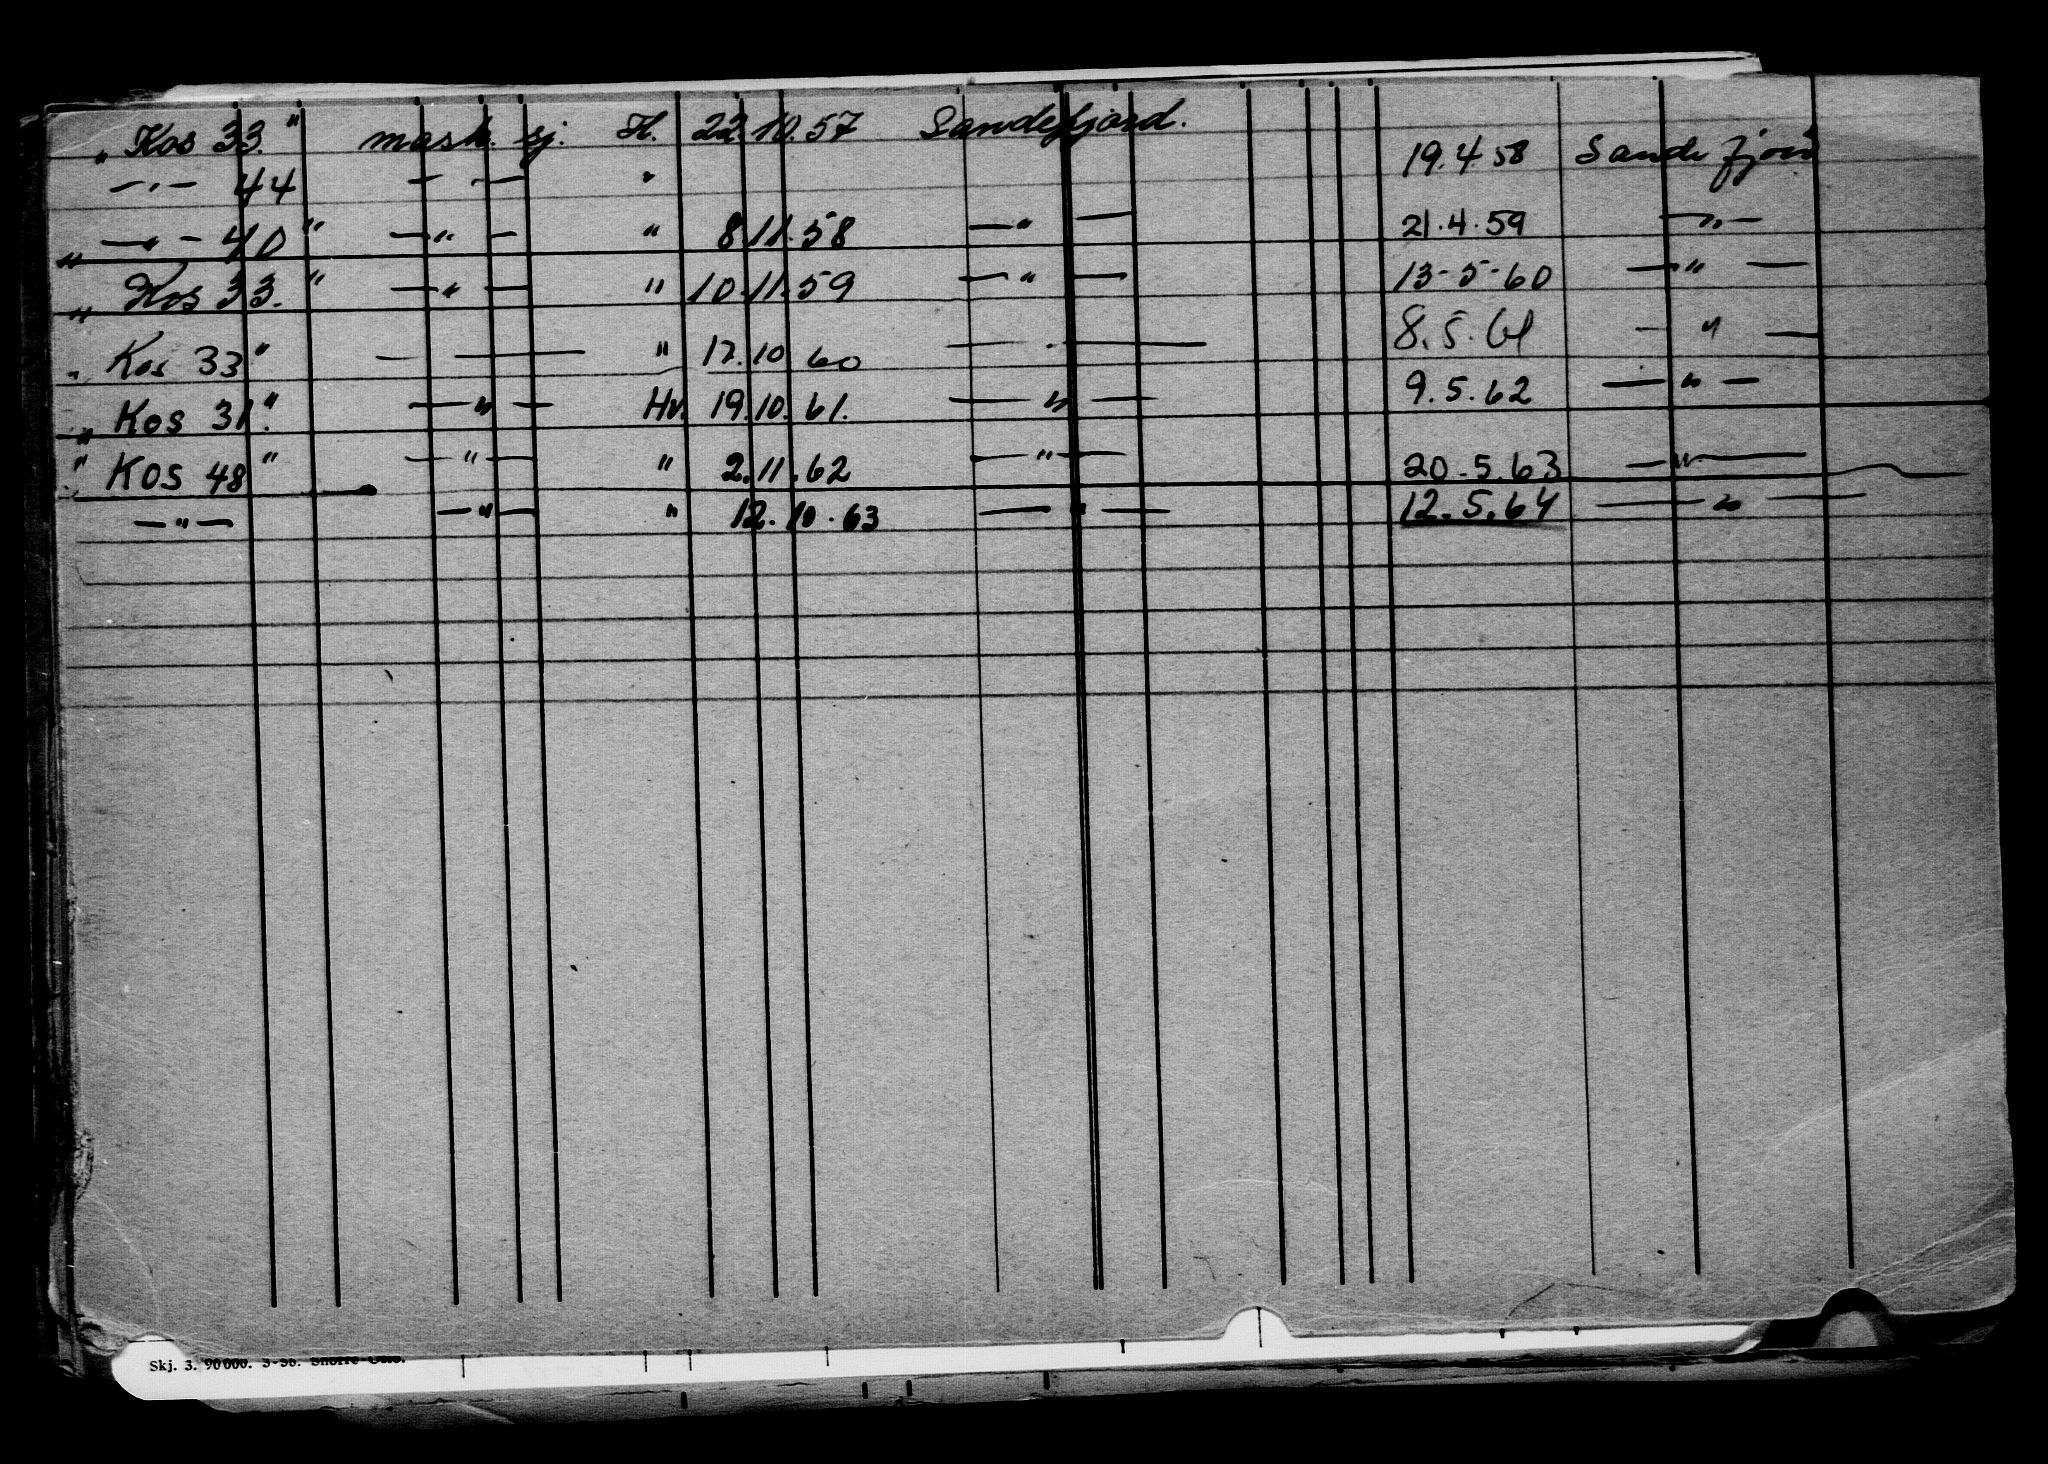 „ Kos 33." mask. sj. H. 22.10.57 Sandefjord. 19.4 58 Sandefjord
—"— 44 — — "
„ —"— 40" —"— " 8.11.58 —"— 21.4.59 —"—
„ Kos 33." —"— " 10.11.59 —"— 13-5-60 —"—
„ Kos 33" — — " 17.10.60 —"— 8.5.61 —"—
„ Kos 31." —"— Hv. 19.10.61. —"— 9.5.62 —"—
" KOS 48" —"— " 2.11.62 —"— 20.5.63 —"—
—"— —"— " 12.10.63 —"— 12.5.64 —"—
Skj. 3. 90000. 3-56.